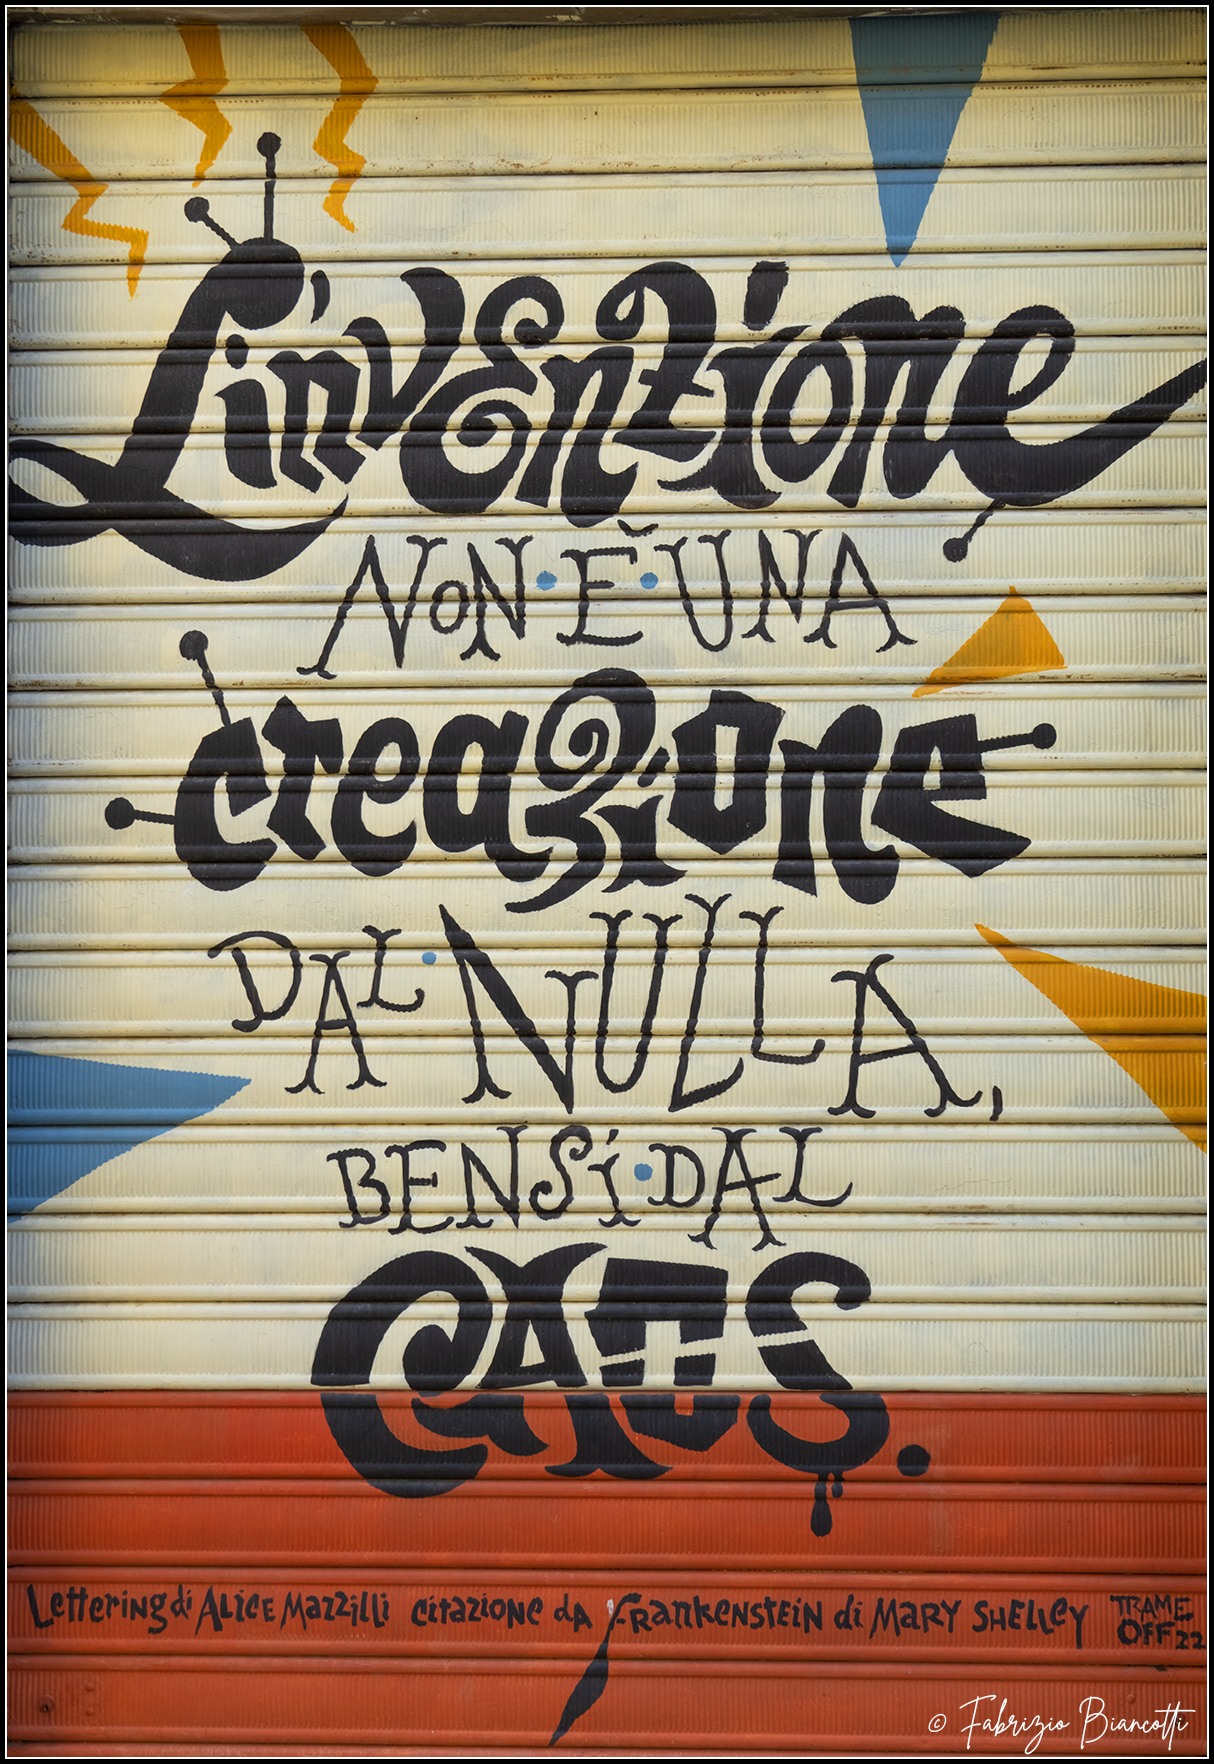 L'invenzione
NON·È·UNA
creazione
DAL·NULLA,
BENSÍ·DAL
CAOS.
Lettering di Alice Mazzilli citazione da Frankenstein di Mary Shelley
TRAME
OFF22
© Fabrizio Biancotti